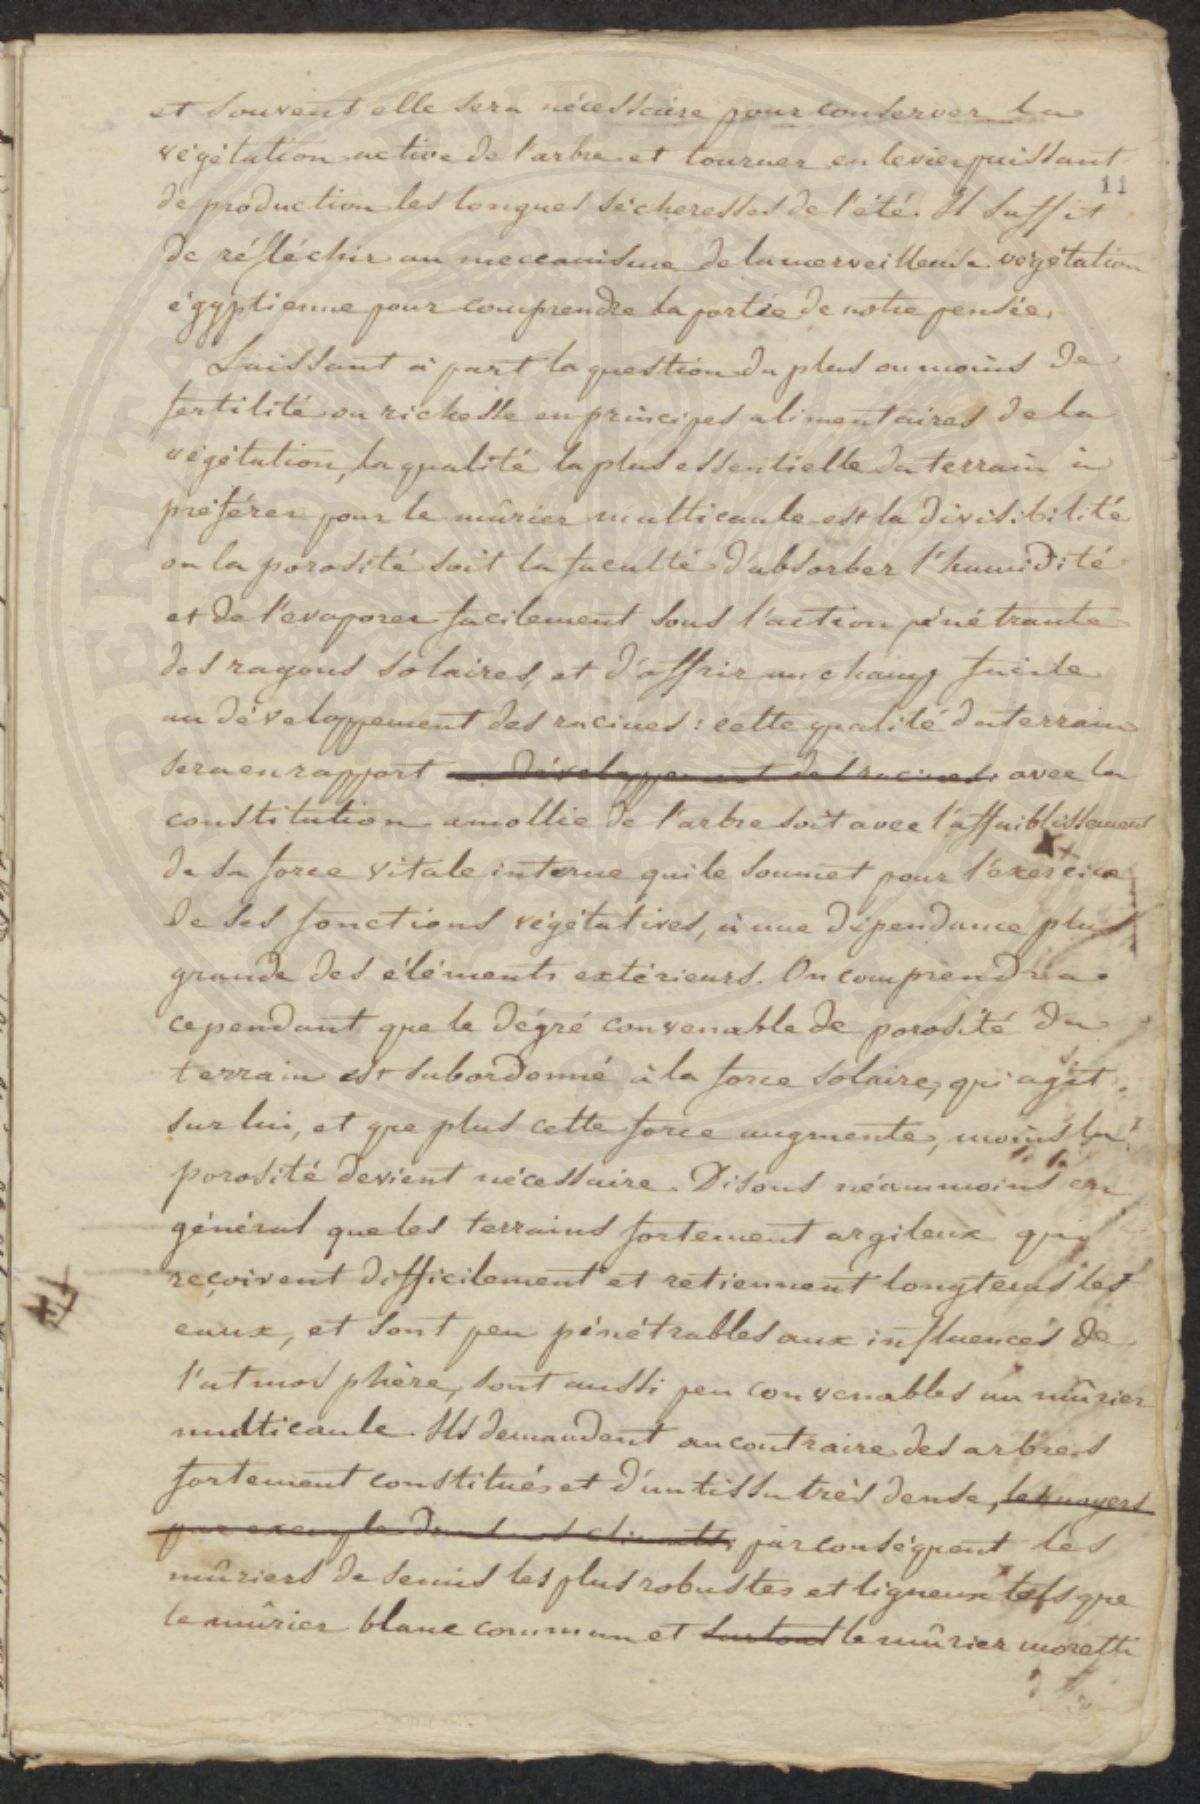 et souvent elle sera nécessaire pour conserver la
végétation active de l'arbre et tourner en levier puissant
11
de production les longues sécheresses de l'été. Il suffit
de réfléchir au meccanisme de la merveilleuse végétation
égyptienne pour comprendre la portée de notre pensée.
Laissant à part la question du plus ou moins de
fertilité ou richesse en principes alimentaires de la
végétation, la qualité la plus essentielle du terrain à
préférer pour le mûrier multicaule est la divisibilité
ou la porosité soit la faculté d'absorber l'humidité
et de l'évaporer facilement sous l'action pénétrante
des rayons solaires, et d'offrir un champ facile
au développement des racines : cette qualité du terrain
sera en rapport au développement des racines avec la
constitution amollie de l'arbre soit avec l'affaiblissement
de sa force vitale interne qui le soumet pour l'exercice
de ses fonctions végétatives, à une dépendance plus
grande des éléments extérieurs. On comprendra
cependant que le dégré convenable de porosité du
terrain est subordonné à la force solaire, qui agit
sur lui, et que plus cette force augmente, moins la
porosité devient nécessaire. Disons néammoins en
général que les terrains fortement argileux qui
reçoivent difficilement et retiennent longtems les
eaux, et sont peu pénétrables aux influences de
l'atmosphère, sont aussi peu convenables au mûrier
multicaule. Ils demandent au contraire des arbres
fortement constitués et d'un tissu très dense, les noyers
par exemple climats, par conséquent les
mûriers de semis les plus robustes et ligneux tels que
le mûrier blanc commun et surtout le mûrier moretti